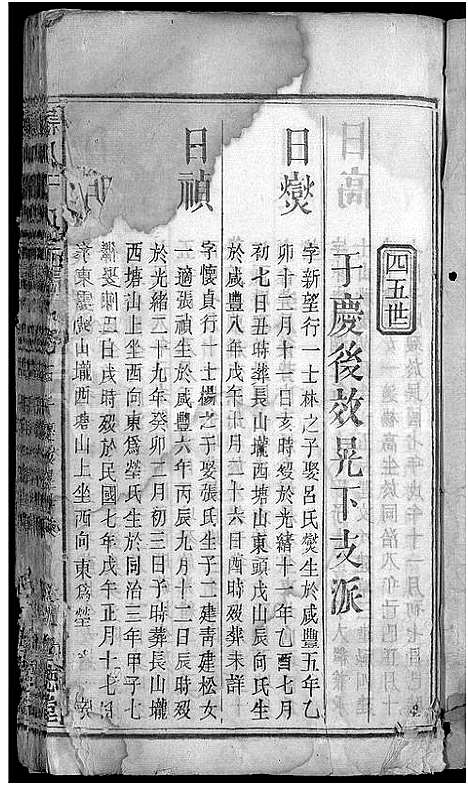 四五世
于慶後效晃下支派
日燮
字新望行一士林之子娶呂氏燮生於咸豐五年乙
卯十二月十一日亥時歿於光緒十一年乙酉七月
初七日丑時葬長山壠西塘山東頭戌山辰向氏生
於咸豐八年戊午十月二十六日酉時歿葬未詳
日禎
字懷貞行十士楊之子娶張氏生子二建青建松女
一適張禎生於咸豐六年丙辰九月十二日辰時歿
於光緒二十九年癸卯三月初三日子時葬長山壠
西塘山上坐西向東爲塋氏生於同治三年甲子七
月初四日戌時歿於民國七年戊午正月十七
東山壠西塘山上坐西向東爲塋